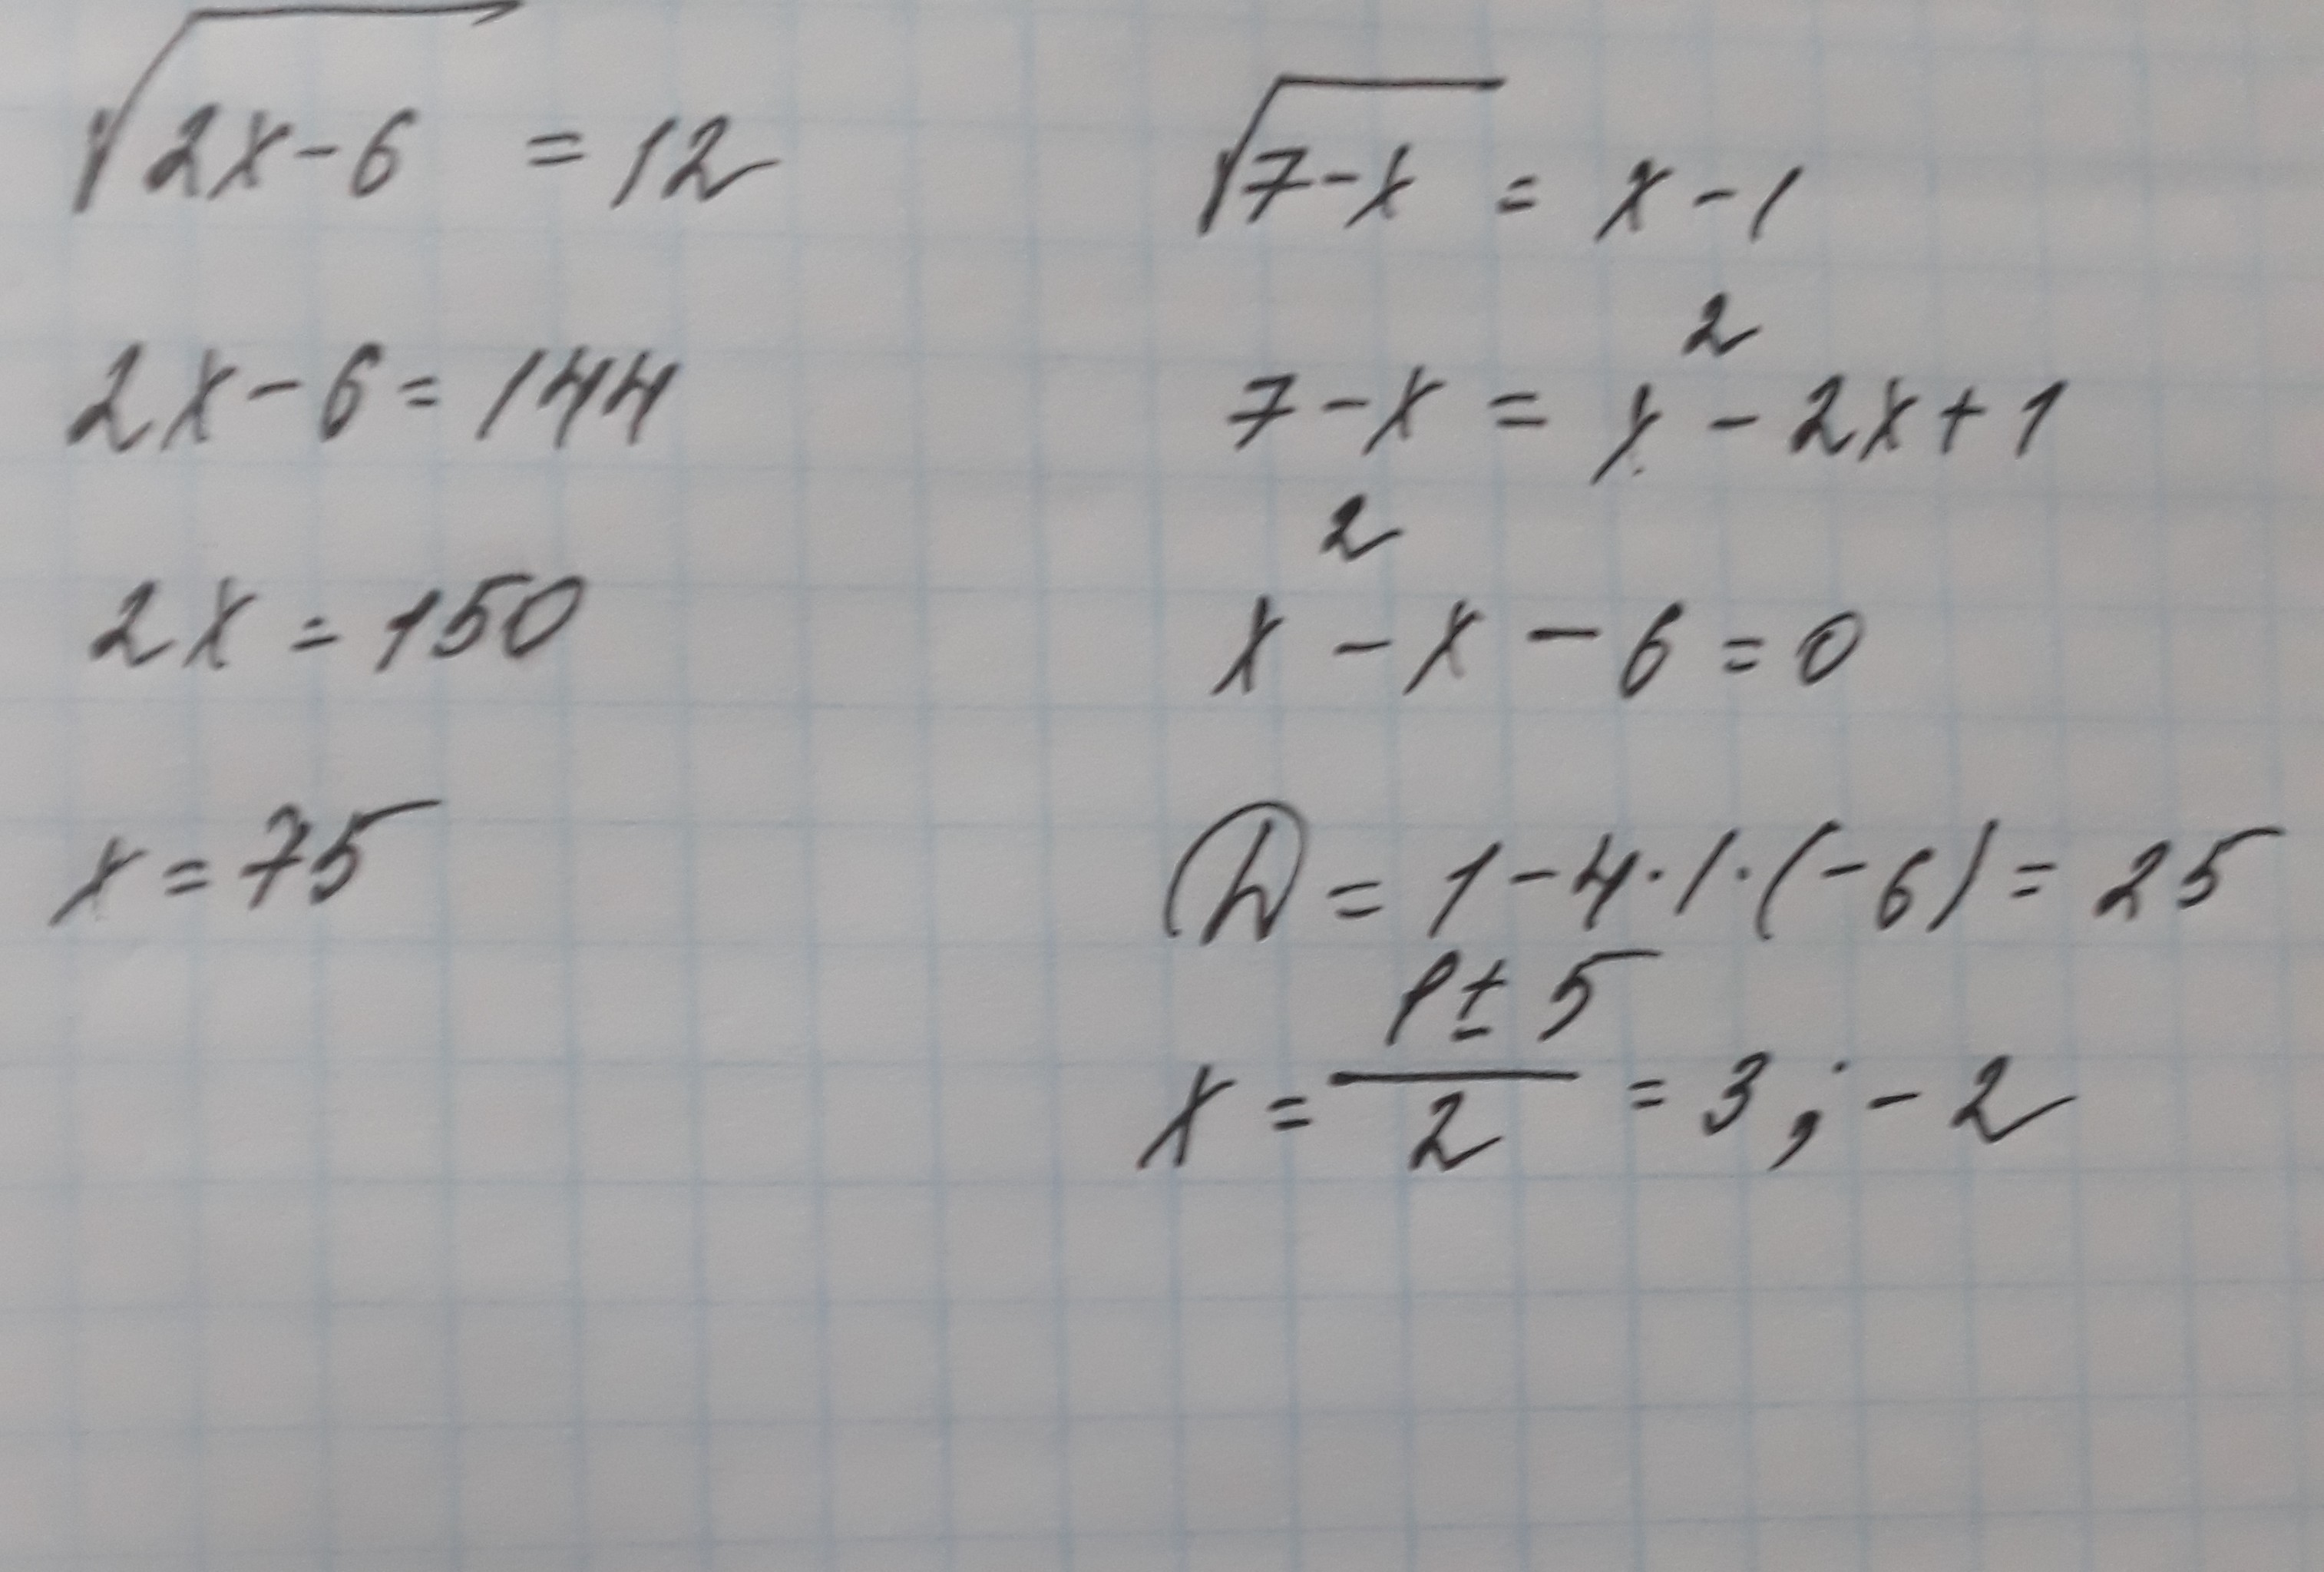 √2x-6 = 12
2x-6=144
2x=150
x=75
√7-x = x-1
7-x = x² - 2x+1
x² - x - 6 = 0
D = 1-4·1·(-6) = 25
x = (1±5)/2 = 3; -2